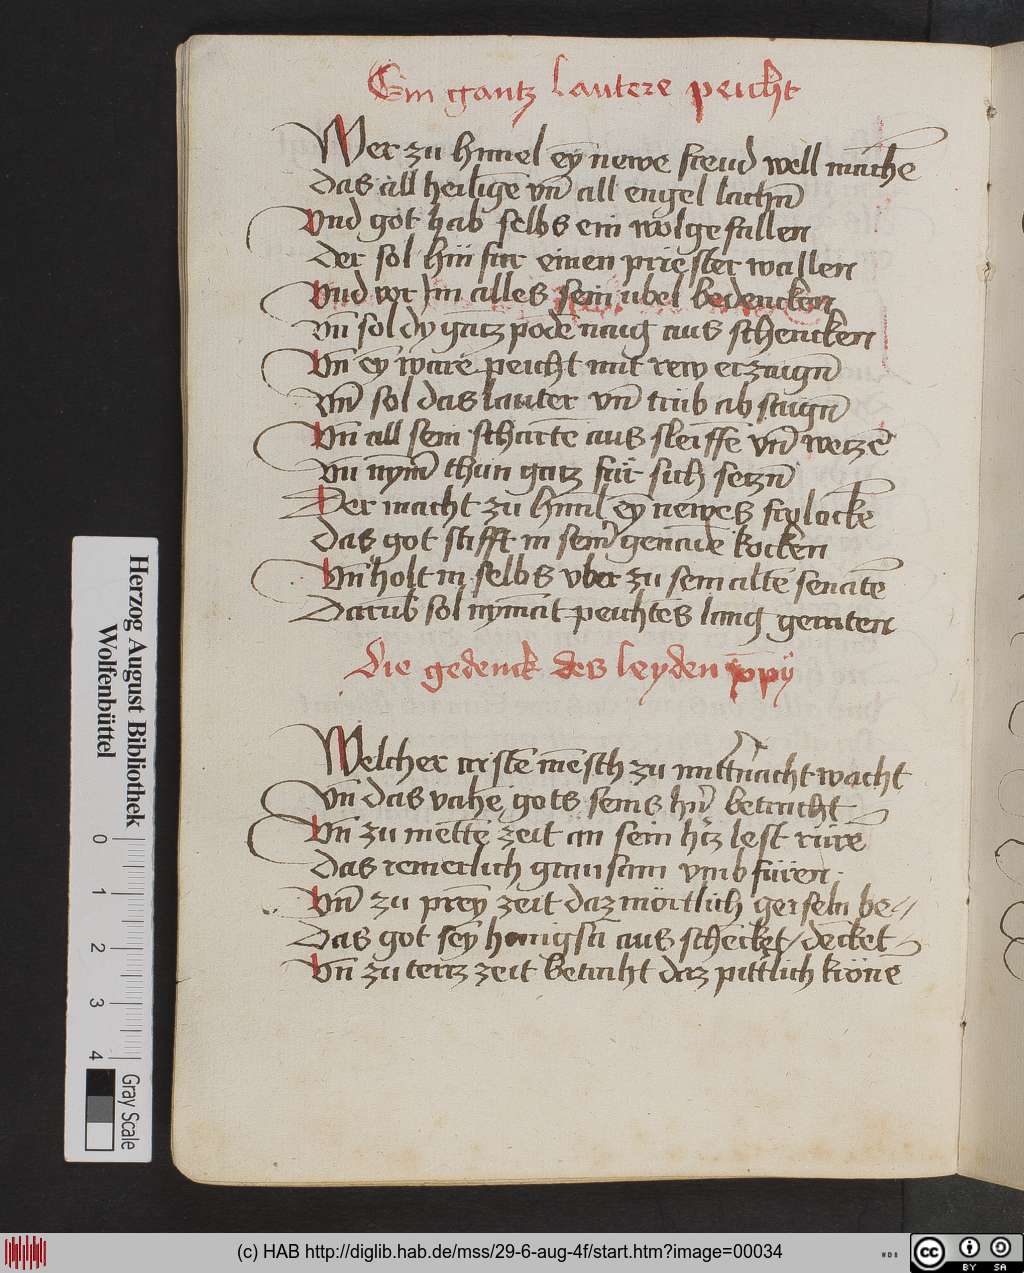 Ein gantz lautere peicht
Wer zu hymel eȳ newe freud well mache
Das all heilige vn̄ all engel lachn̄
Vnd got hab selbs ein wolgefallen
Der sol hin fur einen priester wallen
Vnd vor Im alles sein ubel bedencken
Vn̄ sol dy gātz pode naig aus schencken
Vn̄ eȳ ware peicht mit rew erzaign̄
Vn̄ sol das lauter vn̄ trüb ab saign̄
Vn̄ all sein scharte aus sleiffe vn̄ wetze
Vn̄ nym̄ thun gātz für sich setzn̄
Der macht zu himl eȳ newes frolocke
Das got stifft in sein̄ genade kocken
Vn̄ holt in selbs vber zu sein alte senate
Darūb sol nymāt peichtes lang geraten
Die gedenck des leyden xp̄ī
Welcher cristē mēsch zu mittnacht wacht
Vn̄ das vahe gots seins hn̄ betracht
Vn̄ zu mette zeit an sein hertz lest rüre
Das iemerlich grausam vmbfüren
Vn̄ zu preȳ zeit daz mörtlich geiseln be
Das got sey honigsā aus schēcket / decket
Vn̄ zu tertz zeit betracht daz pittlich kröne
Herzog August Bibliothek
Wolfenbüttel
0 1 2 3 4
Gray Scale
(c) HAB http://diglib.hab.de/mss/29-6-aug-4f/start.htm?image=00034
WDB
cc BY SA